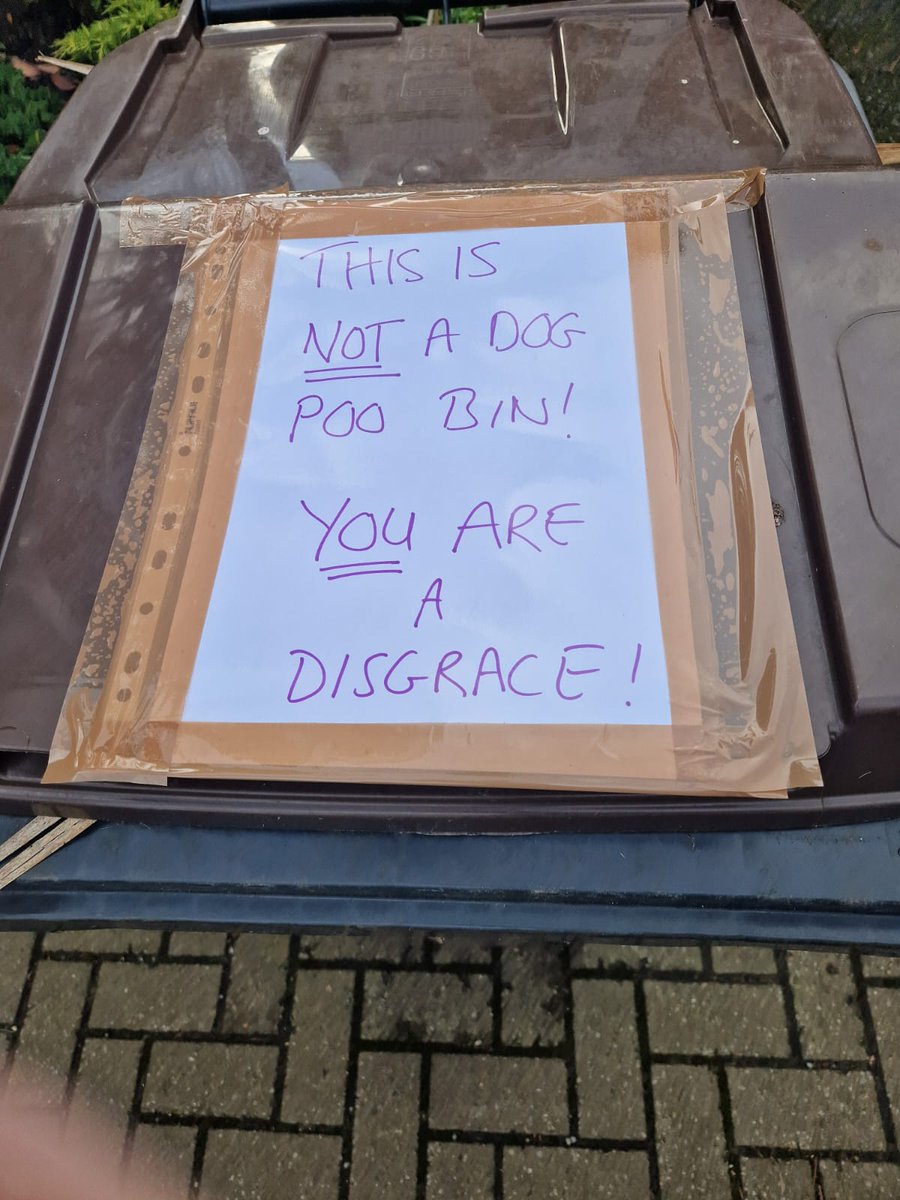 THIS IS
NOT A DOG
POO BIN!
YOU ARE
A
DISGRACE!